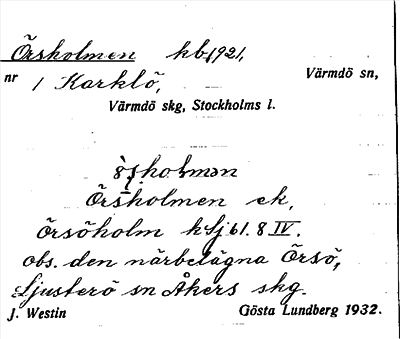 Örsholmen kb 1921,
nr 1 Karklö, Värmdö sn,
Värmdö skg, Stockholms l.
Örsholmen ek,
Örsöholm hSj 61. 8 IV.
obs. den närbelägna Örsö,
Ljusterö sn Åkers skg.
J. Westin Gösta Lundberg 1932.